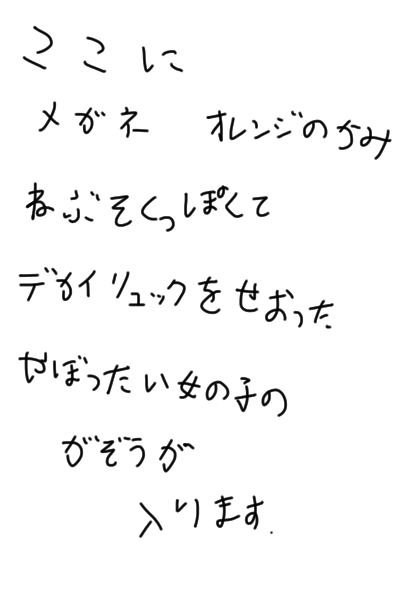 ここに
メガネ オレンジのかみ
ねぶそくっぽくて
デカイリュックをせおった
やぼったい女の子の
がぞうが
入ります.